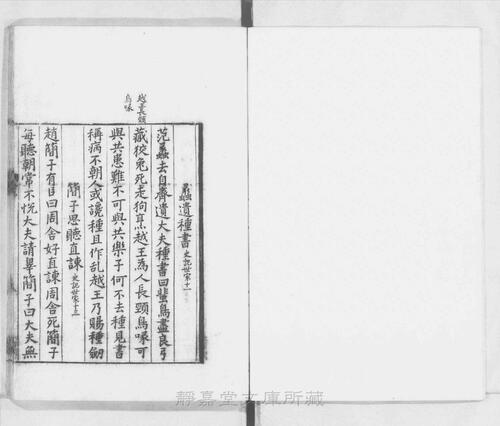 越長頸
鳥喙
蠡遺種書 史記世家十一
范蠡去自齊遺大夫種書曰蜚鳥盡良弓
藏狡兔死走狗烹越王為人長頸鳥喙可
與共患難不可與共樂子何不去種見書
稱病不朝人或讒種且作亂越王乃賜種劒
簡子思聽直諫 史記世家十三
趙簡子有臣曰周舍好直諫周舍死簡子
每聽朝常不悅大夫請辠簡子曰大夫無
靜嘉堂文庫所藏